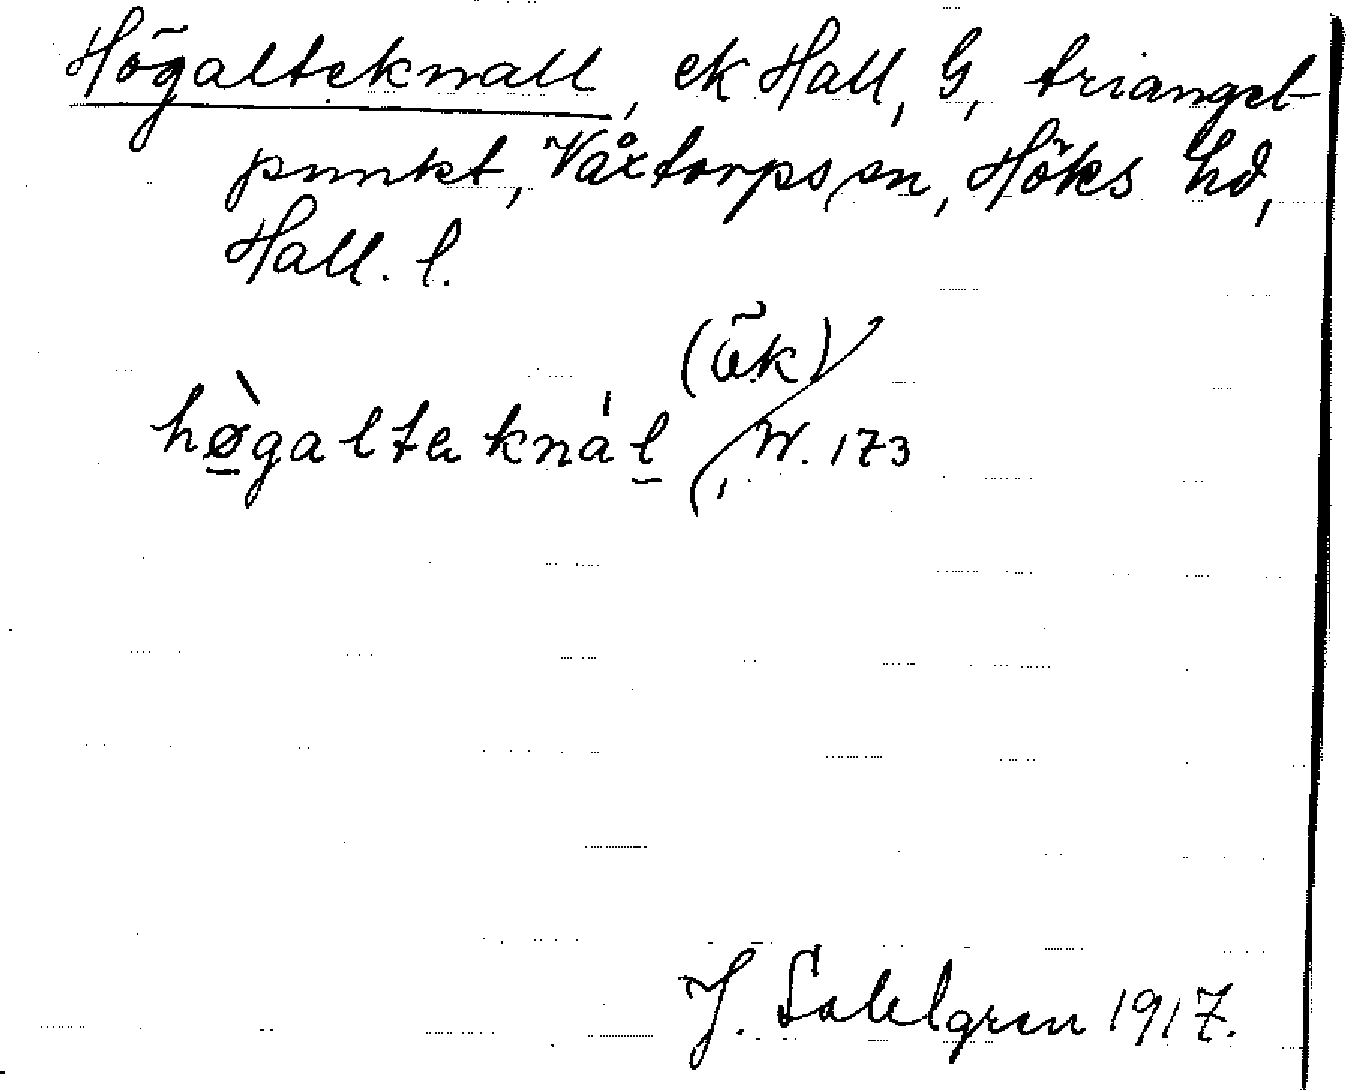 Högalteknall, ek Hall, G, triangel-
punkt, Våxtorps sn, Höks hd,
Hall. l.
(ök)
hø̀galtəknál, W. 173
J. Sahlgren 1917.